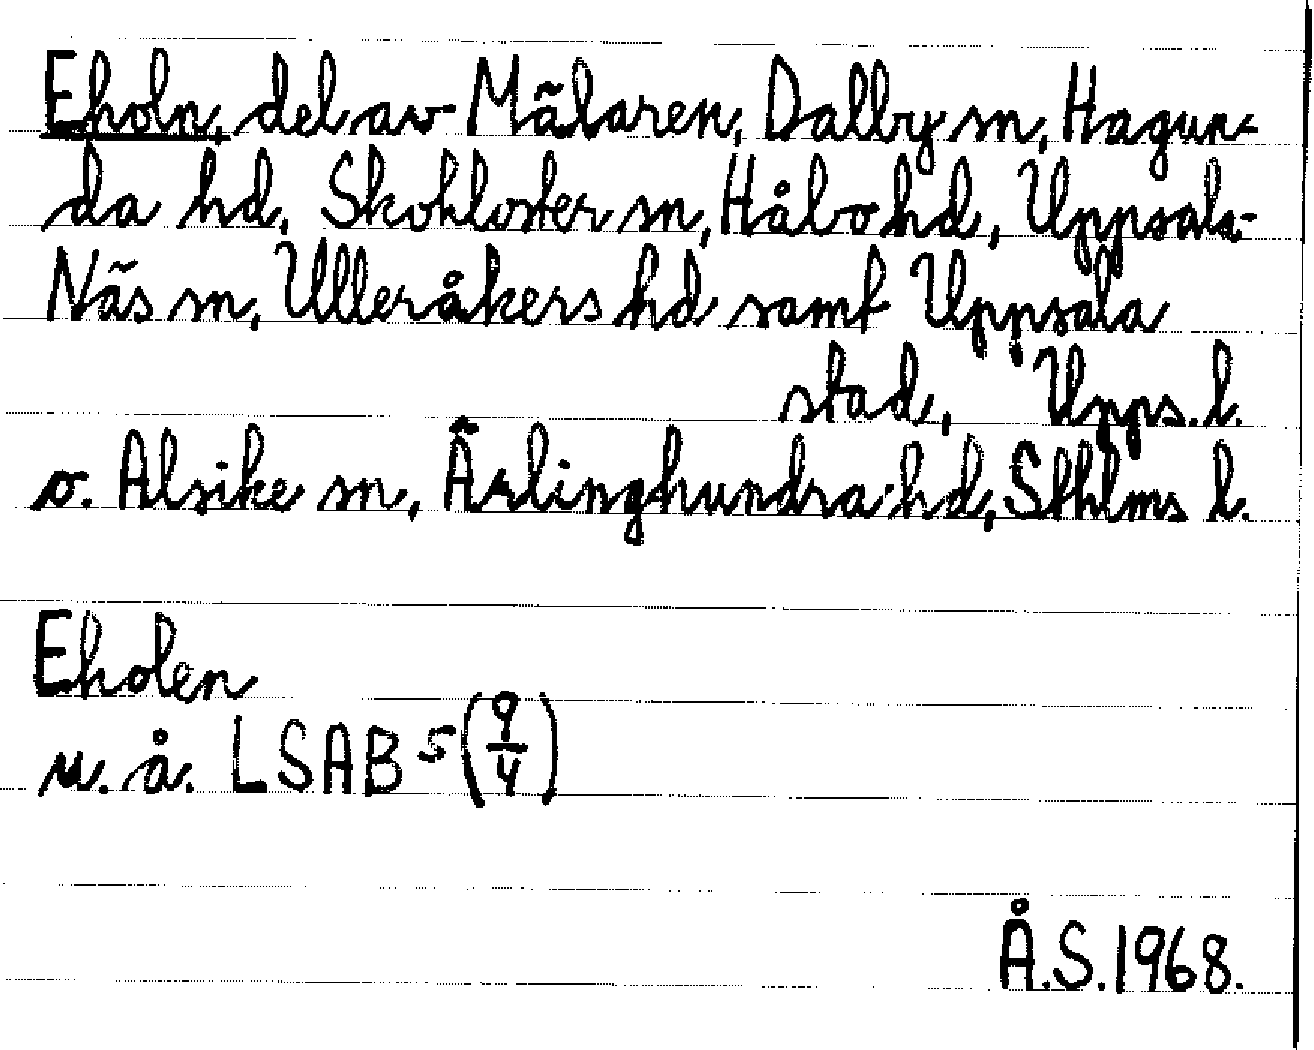 Eholn, del av Mälaren, Dalby sn, Hagun-
da hd, Skokloster sn, Håbo hd, Uppsala-
Näs sn, Ulleråkers hd samt Uppsala
stad, Upps. l.
o. Alsike sn, Ärlinghundra hd, Sthlms l.
Eholen
u. å. LSAB 5 (9/4)
Å.S. 1968.